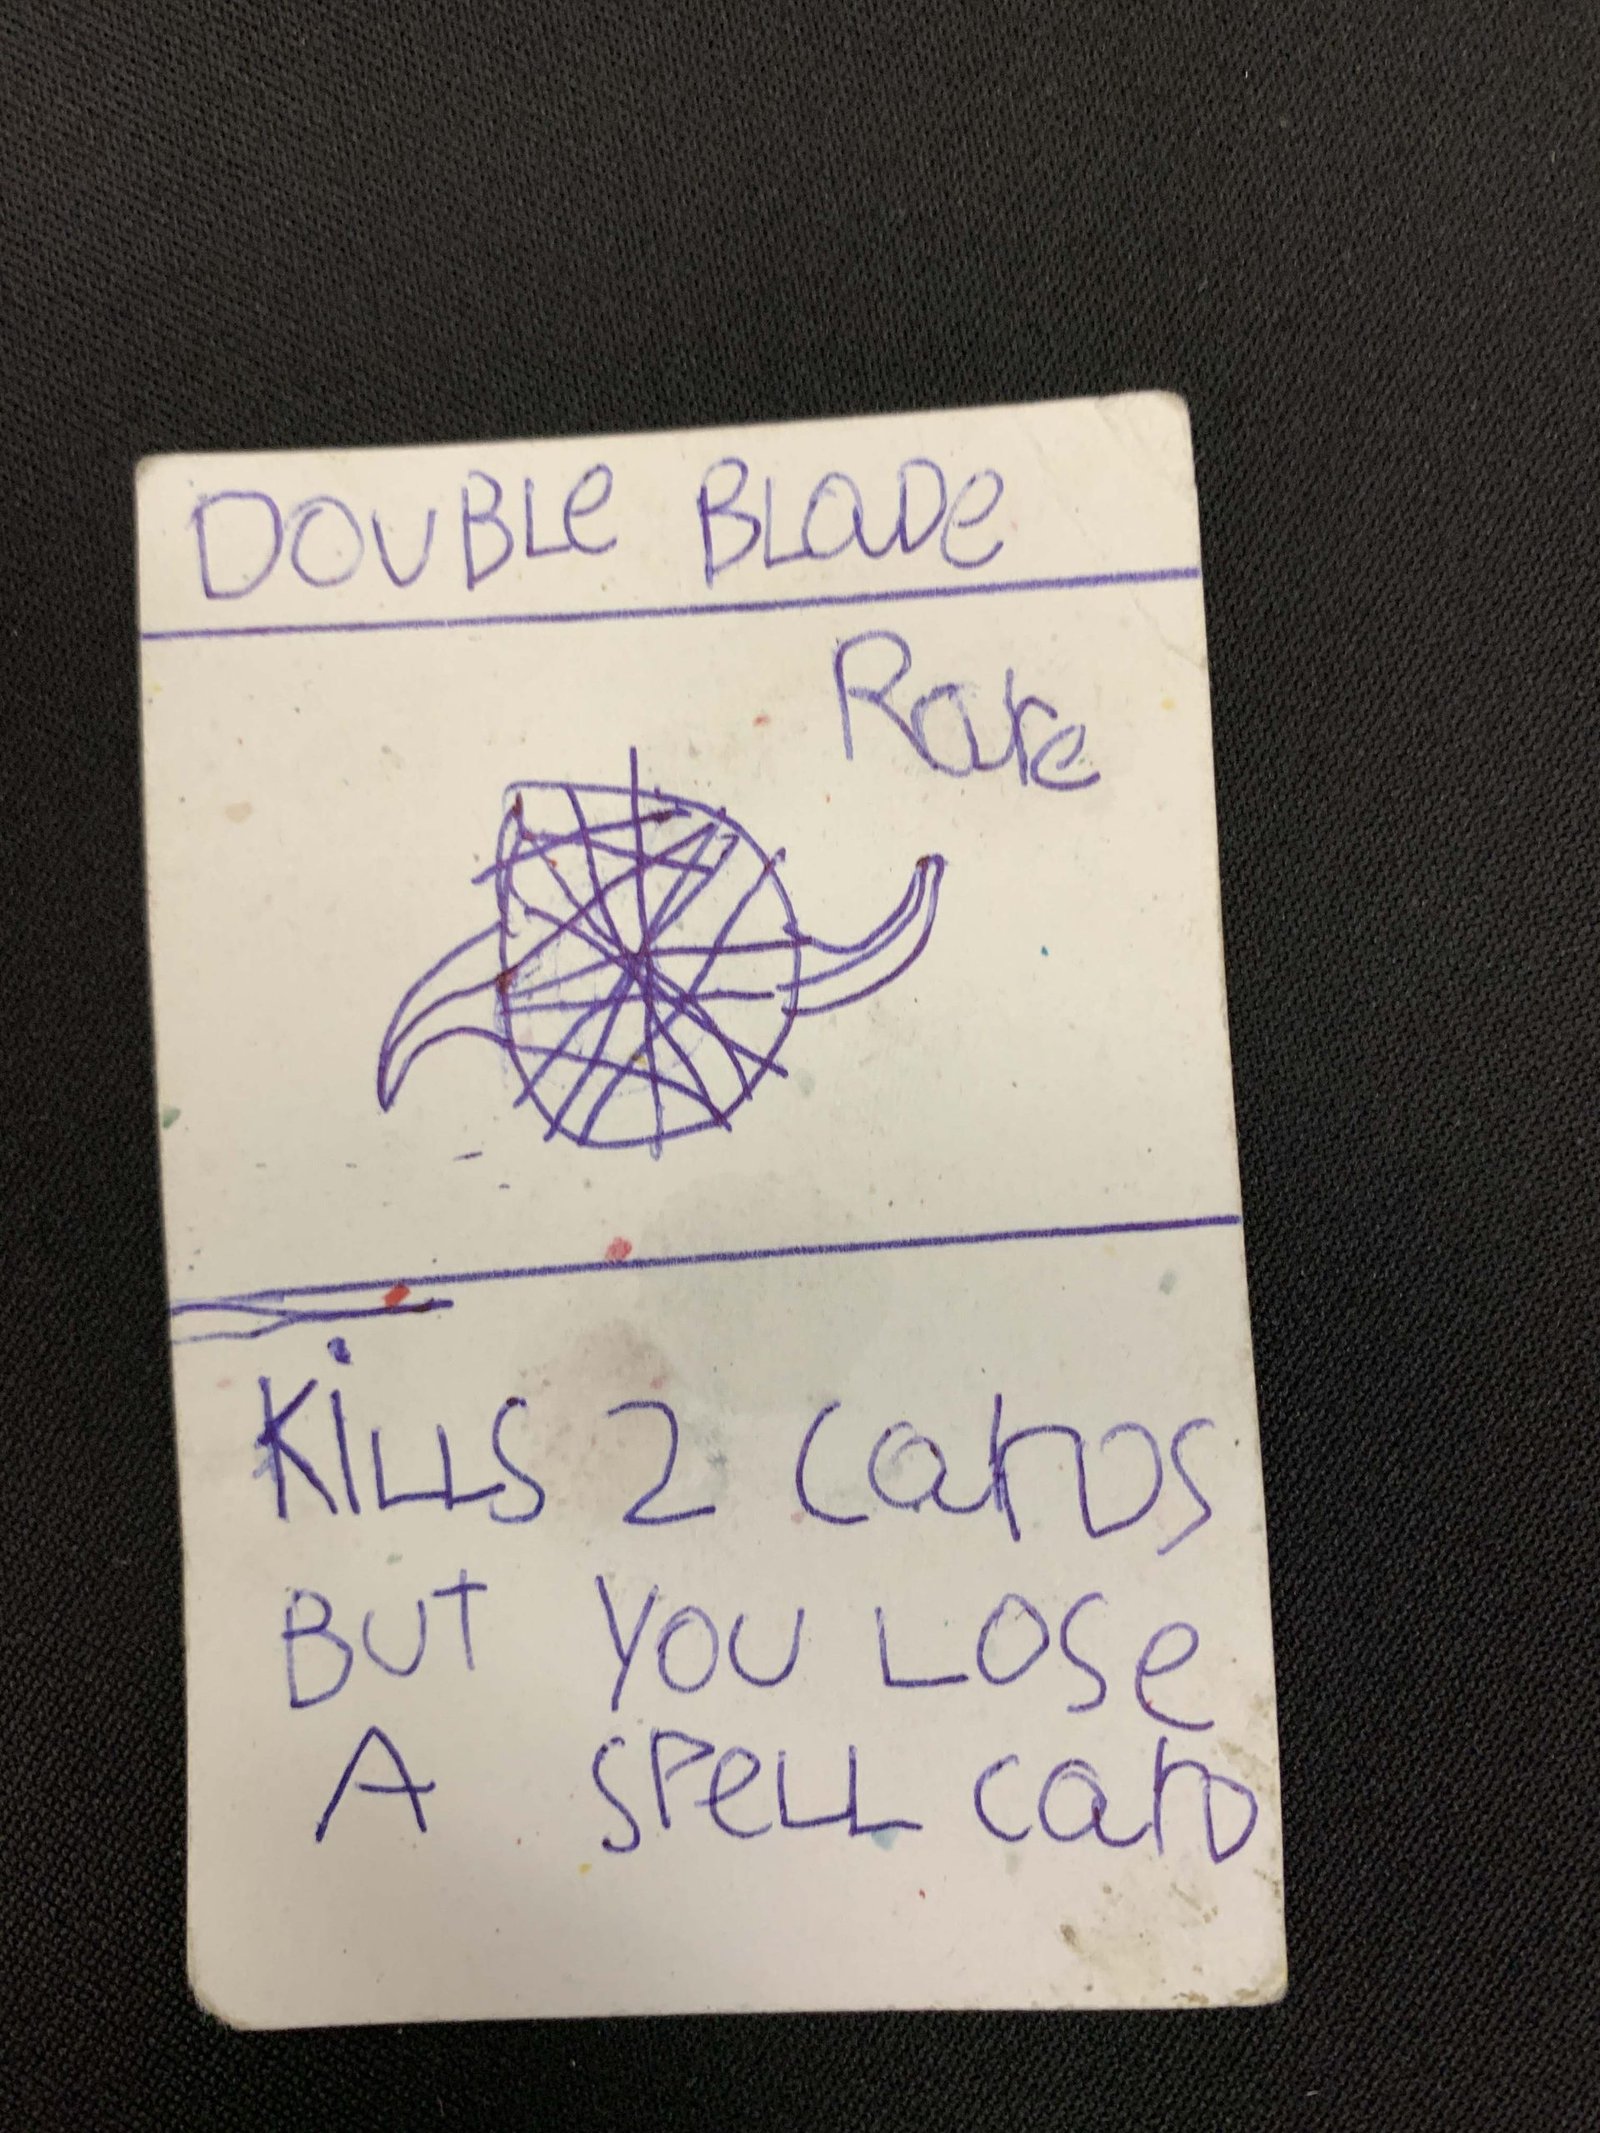 DOUBLe BLaDe
Rare
KiLLS 2 CarDS
BUT YOU LOSe
A SPeLL CarD